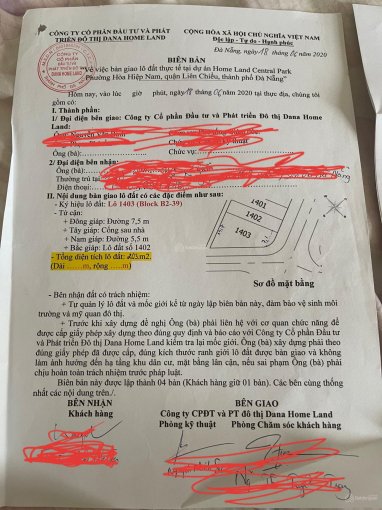 CÔNG TY CỔ PHẦN ĐẦU TƯ VÀ PHÁT
TRIỂN ĐÔ THỊ DANA HOME LAND
CỘNG HÒA XÃ HỘI CHỦ NGHĨA VIỆT NAM
Độc lập - Tự do - Hạnh phúc
Đà Nẵng, ngày 18 tháng 06 năm 2020
BIÊN BẢN
"Về việc bàn giao lô đất thực tế tại dự án Home Land Central Park
Phường Hòa Hiệp Nam, quận Liên Chiểu, thành phố Đà Nẵng"
Hôm nay, vào lúc giờ phút, ngày 18 tháng 06 năm 2020 tại thực địa, chúng tôi
gồm có:
I. Thành phần:
1/ Đại diện bên giao: Công ty Cổ Phần Đầu tư và Phát triển Đô thị Dana Home
Land:
Ông (bà): Chức vụ:
2/ Đại diện bên nhận:
Ông (bà):
Thường trú tại
Điện thoại:
II. Nội dung bàn giao lô đất có các đặc điểm như sau:
- Ký hiệu lô đất: Lô 1403 (Block B2-39)
- Tứ cận:
+ Đông giáp: Đường 7,5 m
+ Tây giáp: Cống sau nhà
+ Nam giáp: Đường 5,5 m
+ Bắc giáp: Lô đất số 1402
- Tổng diện tích lô đất: m2.
(Dài ......m, rộng ......m)
1401
1402
1403
Sơ đồ mặt bằng
- Bên nhận đất có trách nhiệm:
+ Tự quản lý lô đất và mốc giới kể từ ngày lập biên bản này, đảm bảo vệ sinh môi
trường và mỹ quan đô thị.
+ Trước khi xây dựng đề nghị Ông (bà) phải liên hệ với cơ quan chức năng để
được cấp giấy phép xây dựng theo đúng quy định và báo cáo với Công ty Cổ Phần Đầu tư
và Phát triển Đô thị Dana Home Land kiểm tra lại mốc giới. Ông (bà) xây dựng phải theo
đúng giấy phép đã được cấp, đúng kích thước ranh giới lô đất được bàn giao và không
làm ảnh hưởng đến hạ tầng khu dân cư, mặt bằng lân cận, nếu sai phạm Ông (bà) phải
chịu hoàn toàn trách nhiệm trước pháp luật.
Biên bản này được lập thành 04 bản (Khách hàng giữ 01 bản). Các bên cùng thống
nhất các nội dung trên./.
BÊN NHẬN
Khách hàng
BÊN GIAO
Công ty CPĐT và PT đô thị Dana Home Land
Phòng kỹ thuật Phòng Chăm sóc khách hàng